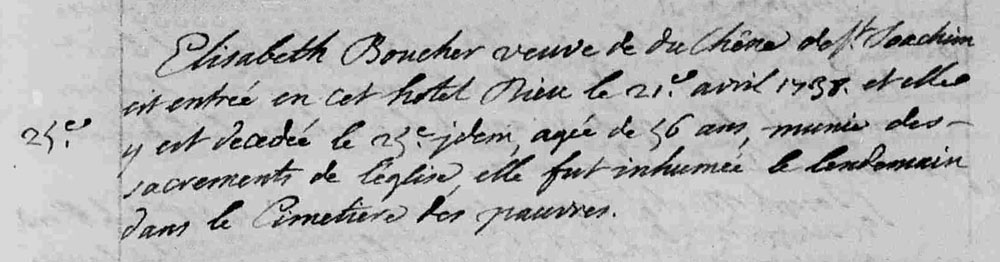 Elisabeth Boucher veuve de du Chêne de St. Joachim
est entrée en cet hotel Dieu le 21.e avril 1758. et elle
25.e
y est decedée le 25.e idem, agée de 56 ans, munie des
sacrements de l'eglise, elle fut inhumée le lendemain
dans le Cimetiere des pauvres.